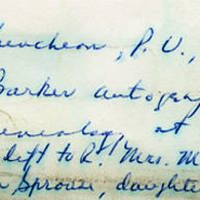 Luncheon, P. U.,
Barker autogra
enealogy, at
left to R. Mrs. M
n Sprouse, daughte